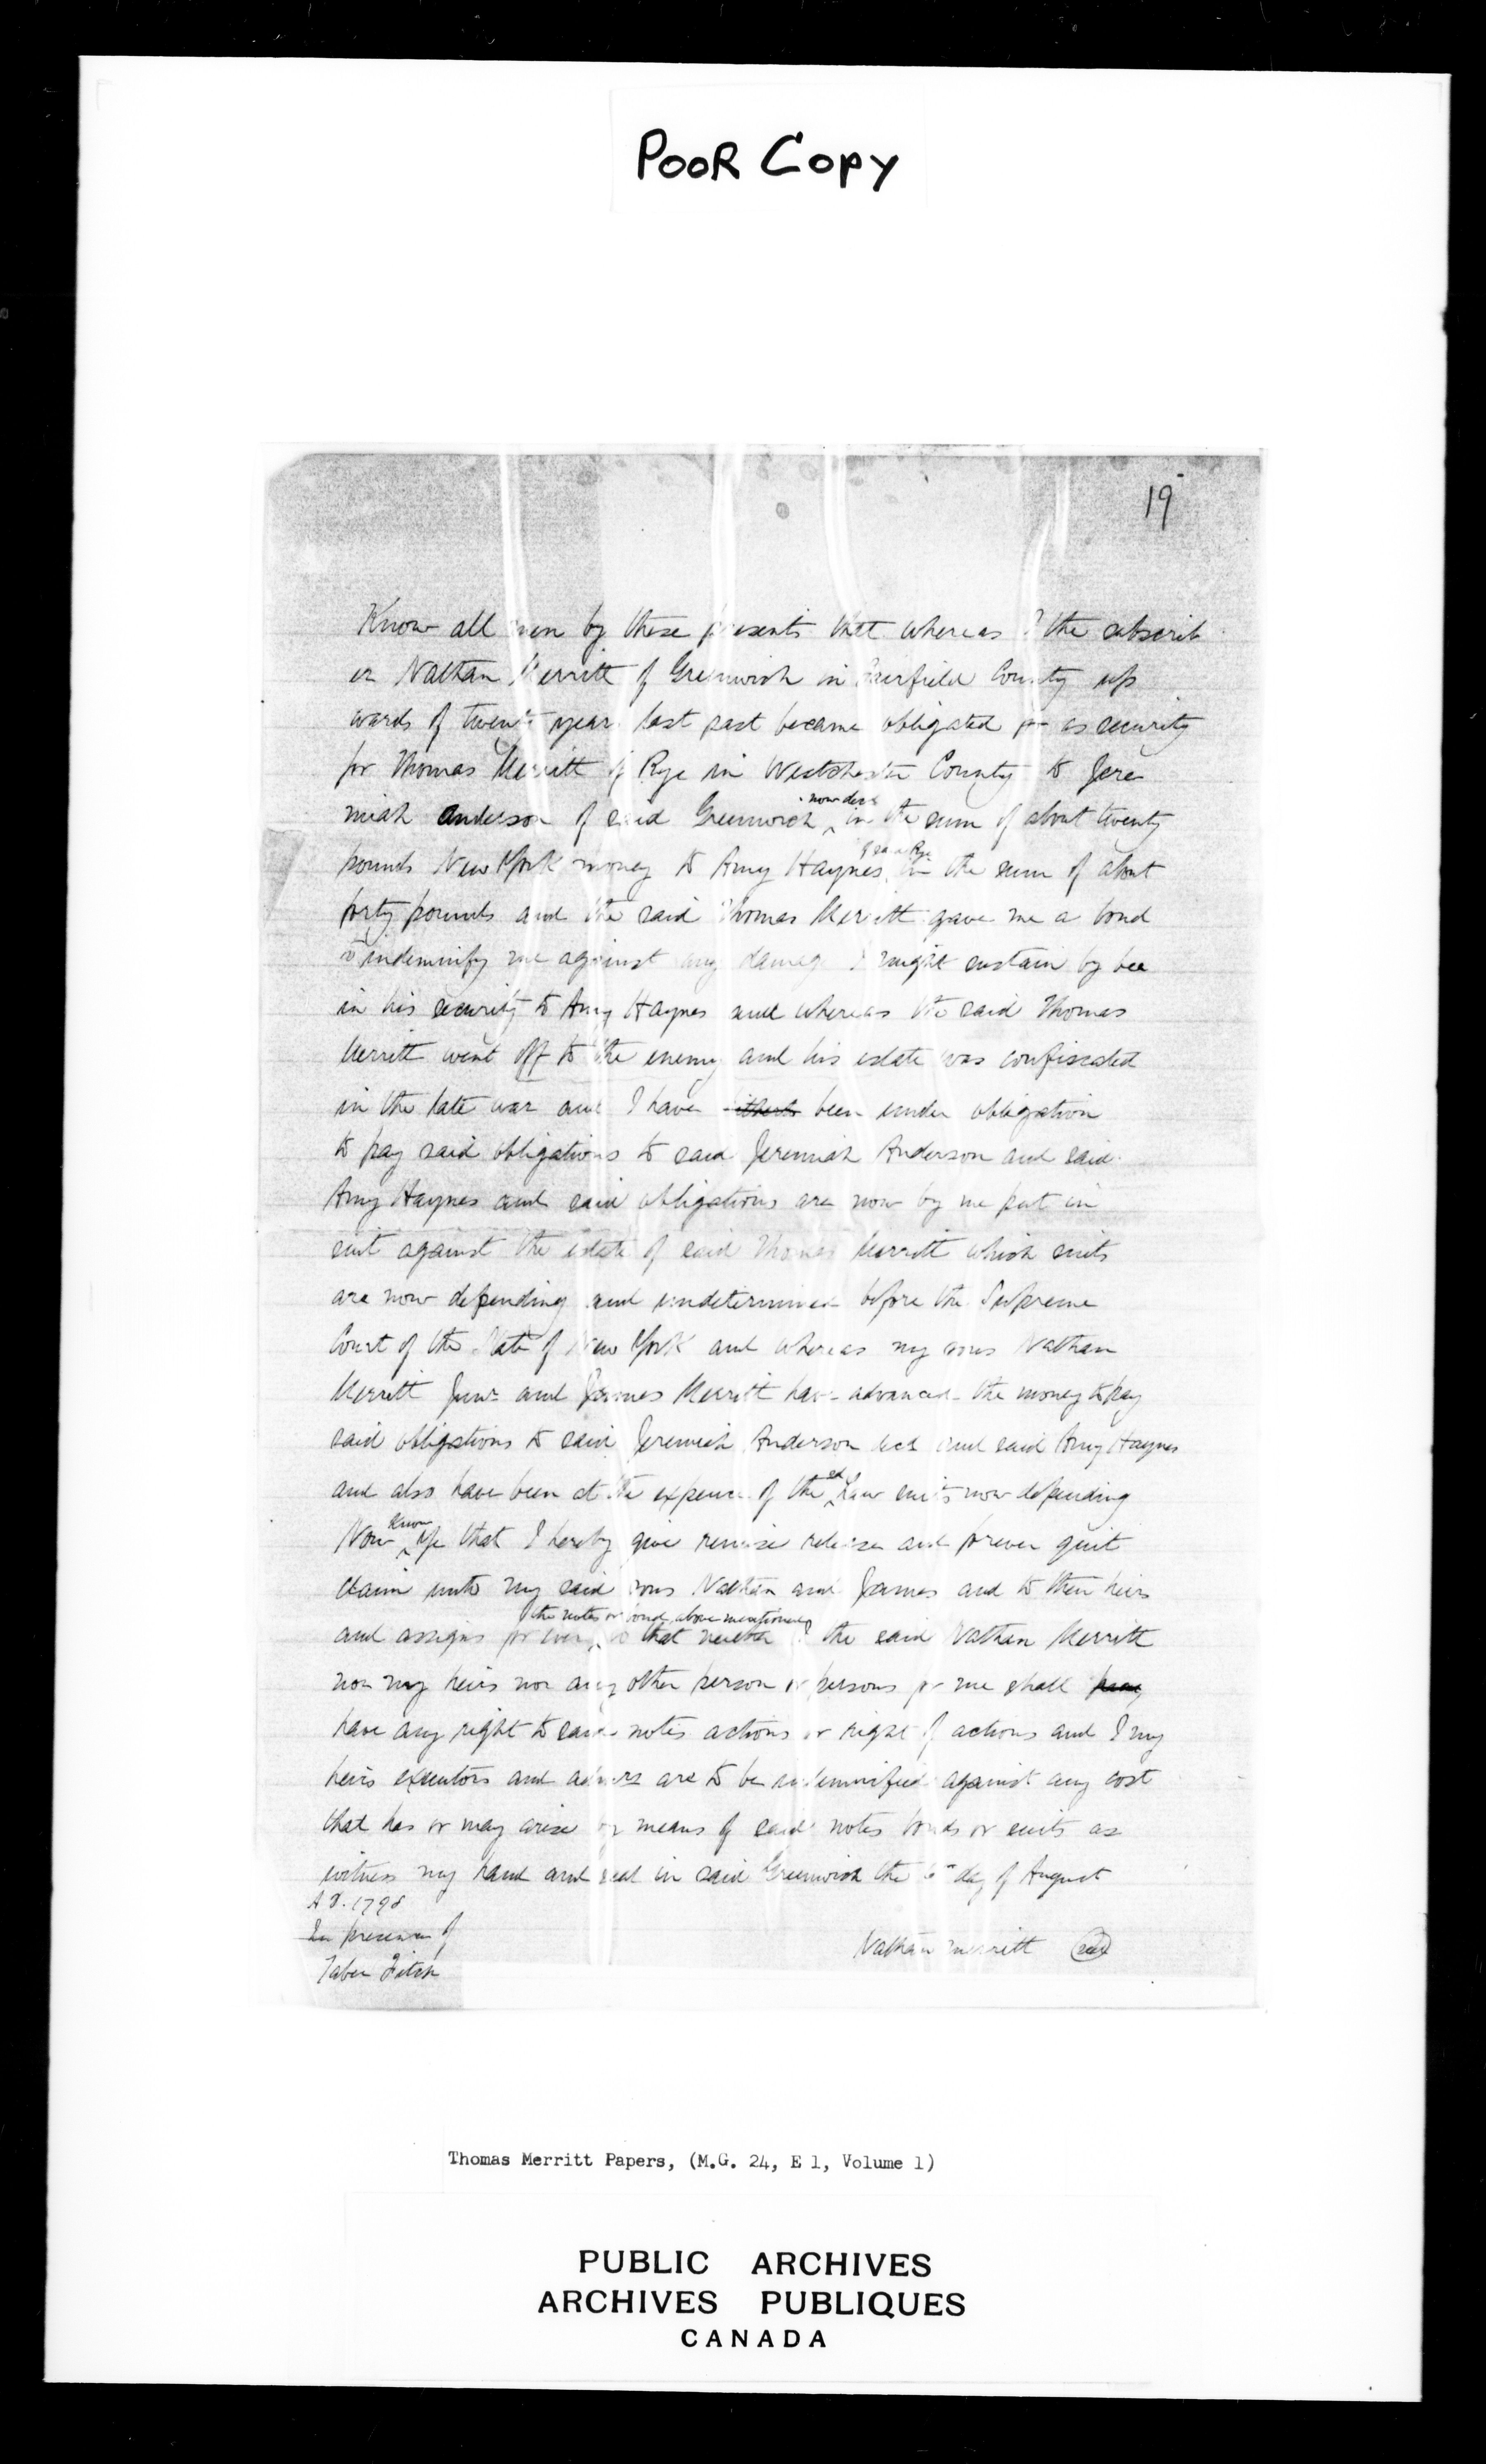 POOR COPY
19
Know all men by these presents that whereas I the subscrib
er Nathan Merritt of Greenwich in Fairfield County up
wards of twenty years last past became obligated for as security
for Thomas Merritt of Rye in Westchester County to Jere
miah Anderson of said Greenwich now decd in the sum of about twenty
pounds New York money to Amy Haynes of said Rye in the sum of about
forty pounds and the said Thomas Merritt gave me a bond
to indemnify me against any damag I might sustain by bee
in his security to Amy Haynes and whereas the said Thomas
Merritt went off to the enemy and his estate was confiscated
in the late war and I have been under obligation
to pay said obligations to said Jeremiah Anderson and said
Amy Haynes and said obligations are now by me put in
suit against the estate of said Thomas Merritt which suits
are now depending and undetermined before the Supreme
Court of the State of New York and whereas my sons Nathan
Merritt Junr and James Merritt have advanced the money to pay
said obligations to said Jeremiah Anderson decd and said Amy Haynes
and also have been at the expence of the sd Law suits now depending
Now Know Ye that I hereby give remise release and forever quit
claim unto my said sons Nathan and James and to their heirs
and assigns for ever the notes or bond above mentioned so that neither I the said Nathan Merritt
nor my heirs nor any other person or persons for me shall
have any right to said notes actions or right of actions and I my
heirs executors and admrs are to be indemnified against any cost
that has or may arise by means of said notes bonds or suits as
witness my hand and seal in said Greenwich the 6th day of August
A D. 1798
In presence of
Jabez Fitch
Nathan Merritt seal
Thomas Merritt Papers, (M.G. 24, E 1, Volume 1)
PUBLIC ARCHIVES
ARCHIVES PUBLIQUES
CANADA